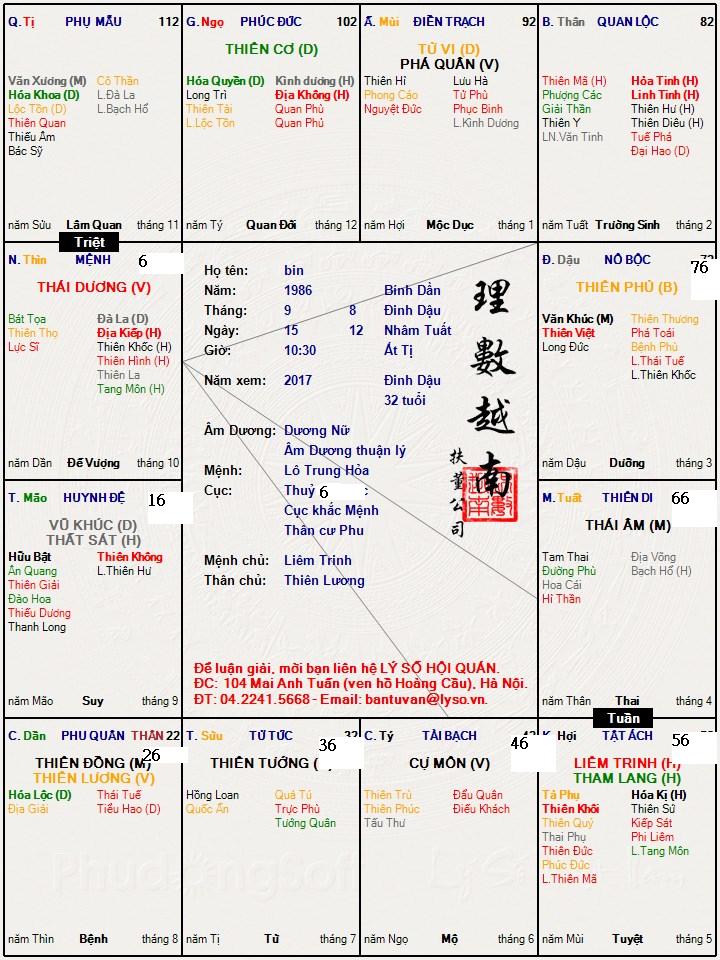 Q. Tị PHỤ MẪU 112
Văn Xương (M) Cô Thần
Hóa Khoa (D) L.Đà La
Lộc Tồn (D) L.Bạch Hổ
Thiên Quan
Thiếu Âm
Bác Sỹ
năm Sửu Lâm Quan tháng 11
G. Ngọ PHÚC ĐỨC 102
THIÊN CƠ (D)
Hóa Quyền (D) Kình dương (H)
Long Trì Địa Không (H)
Thiên Tài Quan Phủ
L.Lộc Tồn Quan Phủ
năm Tý Quan Đới tháng 12
Ấ. Mùi ĐIỀN TRẠCH 92
TỬ VI (D)
PHÁ QUÂN (V)
Thiên Hỉ Lưu Hà
Phong Cáo Tử Phù
Nguyệt Đức Phục Binh
L.Kình Dương
năm Hợi Mộc Dục tháng 1
B. Thân QUAN LỘC 82
Thiên Mã (H) Hỏa Tinh (H)
Phượng Các Linh Tinh (H)
Giải Thần Thiên Hư (H)
Thiên Y Thiên Diêu (H)
LN.Văn Tinh Tuế Phá
Đại Hao (D)
năm Tuất Trường Sinh tháng 2
Triệt
N. Thìn MỆNH 6
THÁI DƯƠNG (V)
Bát Tọa Đà La (D)
Thiên Thọ Địa Kiếp (H)
Lực Sĩ Thiên Khốc (H)
Thiên Hình (H)
Thiên La
Tang Môn (H)
năm Dần Đế Vượng tháng 10
Họ tên: bin
Năm: 1986 Bính Dần
Tháng: 9 8 Đinh Dậu
Ngày: 15 12 Nhâm Tuất
Giờ: 10:30 Ất Tị
Năm xem: 2017 Đinh Dậu
32 tuổi
Âm Dương: Dương Nữ
Âm Dương thuận lý
Mệnh: Lô Trung Hỏa
Cục: Thuỷ 6
Cục khắc Mệnh
Thân cư Phu
Mệnh chủ: Liêm Trinh
Thân chủ: Thiên Lương
理數越南
扶董公司
Để luận giải, mời bạn liên hệ LÝ SỐ HỘI QUÁN.
ĐC: 104 Mai Anh Tuấn (ven hồ Hoàng Cầu), Hà Nội.
ĐT: 04.2241.5668 - Email: bantuvan@lyso.vn.
Đ. Dậu NÔ BỘC 76
THIÊN PHỦ (B)
Văn Khúc (M) Thiên Thương
Thiên Việt Phá Toái
Long Đức Bệnh Phù
L.Thái Tuế
L.Thiên Khốc
năm Dậu Dưỡng tháng 3
T. Mão HUYNH ĐỆ 16
VŨ KHÚC (D)
THẤT SÁT (H)
Hữu Bật Thiên Không
Ân Quang L.Thiên Hư
Thiên Giải
Đào Hoa
Thiếu Dương
Thanh Long
năm Mão Suy tháng 9
M. Tuất THIÊN DI 66
THÁI ÂM (M)
Tam Thai Địa Võng
Đường Phù Bạch Hổ (H)
Hoa Cái
Hỉ Thần
năm Thân Thai tháng 4
Tuần
C. Dần PHU QUÂN THÂN 22
26
THIÊN ĐỒNG (M)
THIÊN LƯƠNG (V)
Hóa Lộc (D) Thái Tuế
Địa Giải Tiểu Hao (D)
năm Thìn Bệnh tháng 8
T. Sửu TỬ TỨC 32
36
THIÊN TƯỚNG
Hồng Loan Quả Tú
Quốc Ấn Trực Phù
Tướng Quân
năm Tị Tử tháng 7
C. Tý TÀI BẠCH
46
CỰ MÔN (V)
Thiên Trù Đẩu Quân
Thiên Phúc Điếu Khách
Tấu Thư
năm Ngọ Mộ tháng 6
Hợi TẬT ÁCH 56
LIÊM TRINH (H)
THAM LANG (H)
Tả Phụ Hóa Kị (H)
Thiên Khôi Thiên Sứ
Thiên Quý Kiếp Sát
Thai Phụ Phi Liêm
Thiên Đức L.Tang Môn
Phúc Đức
L.Thiên Mã
năm Mùi Tuyệt tháng 5